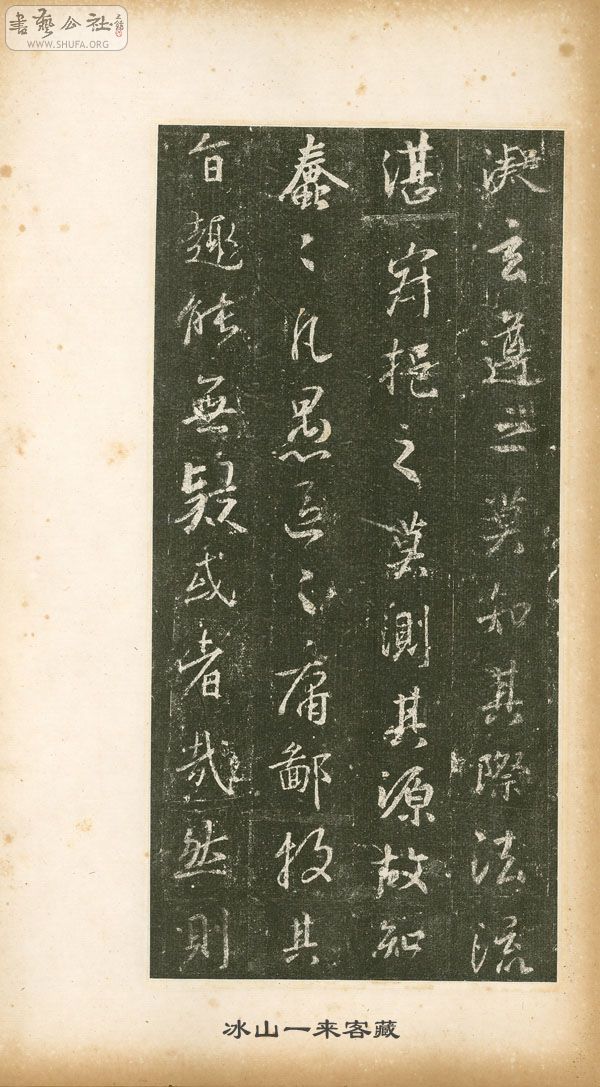 書藝公社
WWW.SHUFA.ORG
凝玄遵之莫知其際法流
湛寂挹之莫測其源故知
蠢〻凡愚區〻庸鄙投其
旨趣能無疑或者哉然則
冰山一来客藏